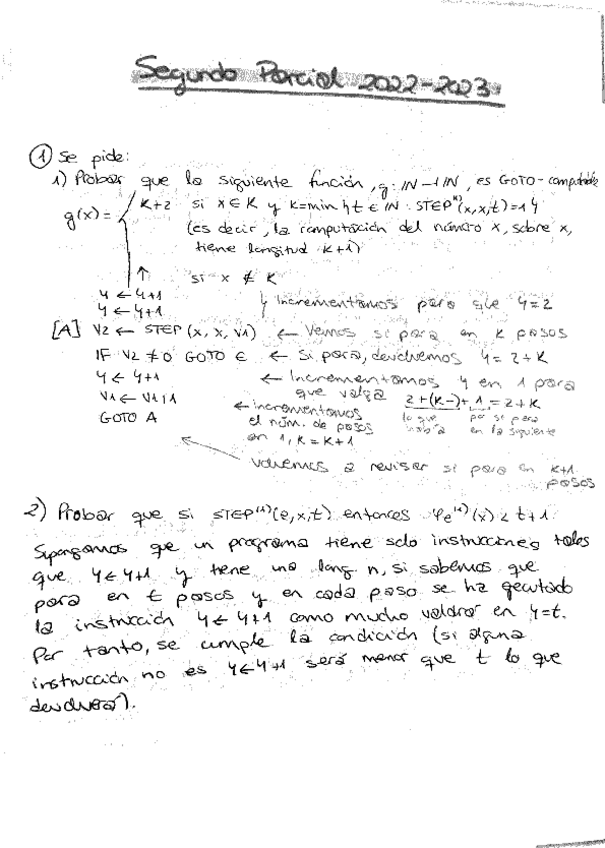 Segundo Parcial 2022-2023
① Se pide:
1) Probar que la siguiente función, g: IN → IN, es GOTO-computable
g(x) = K+2 si x ∈ K y k=min {t ∈ IN : STEP⁽¹⁾(x,x,t)=1}
(es decir, la computación del número x, sobre x,
tiene longitud k+1)
↑ si x ∉ K
Y ← Y+1
Y ← Y+1 } Incrementamos para que Y=2
[A] V2 ← STEP (x, x, V1) ← Vemos si para en K pasos
IF V2 ≠ 0 GOTO E ← Si para, devolvemos Y = 2+K
Y ← Y+1 ← Incrementamos Y en 1 para
que valga 2+(K-)+1 = 2+K
V1 ← V1+1 ← incrementamos
el núm. de pasos
en 1, K = K+1
lo que había
por si para en la siguiente
GOTO A
volvemos a revisar si para en K+1
pasos
2) Probar que si STEP⁽¹⁾(e,x,t) entonces φe⁽¹⁾(x) < t+1
Supongamos que un programa tiene solo instrucciones tales
que Y ← Y+1 y tiene una long. n, si sabemos que
para en t pasos y en cada paso se ha ejecutado
la instrucción Y ← Y+1 como mucho valdrá en Y=t.
Por tanto, se cumple la condición (si alguna
instrucción no es Y←Y+1 será menor que t lo que
devolverá).